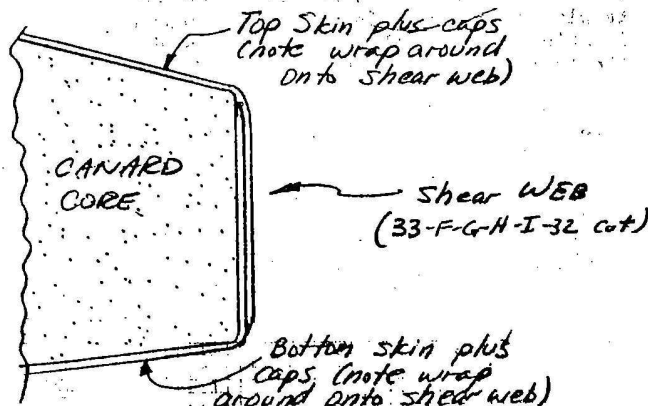 Top Skin plus caps
(note wrap around
onto shear web)
CANARD
CORE
Shear WEB
(33-F-G-H-I-32 cut)
Bottom skin plus
caps (note wrap
around onto shear web)